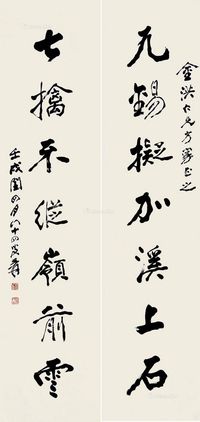 金洪仁兄方家正之
九錫擬加溪上石
七擒不縱嶺前雲
壬戌閏四月八十四叟爰